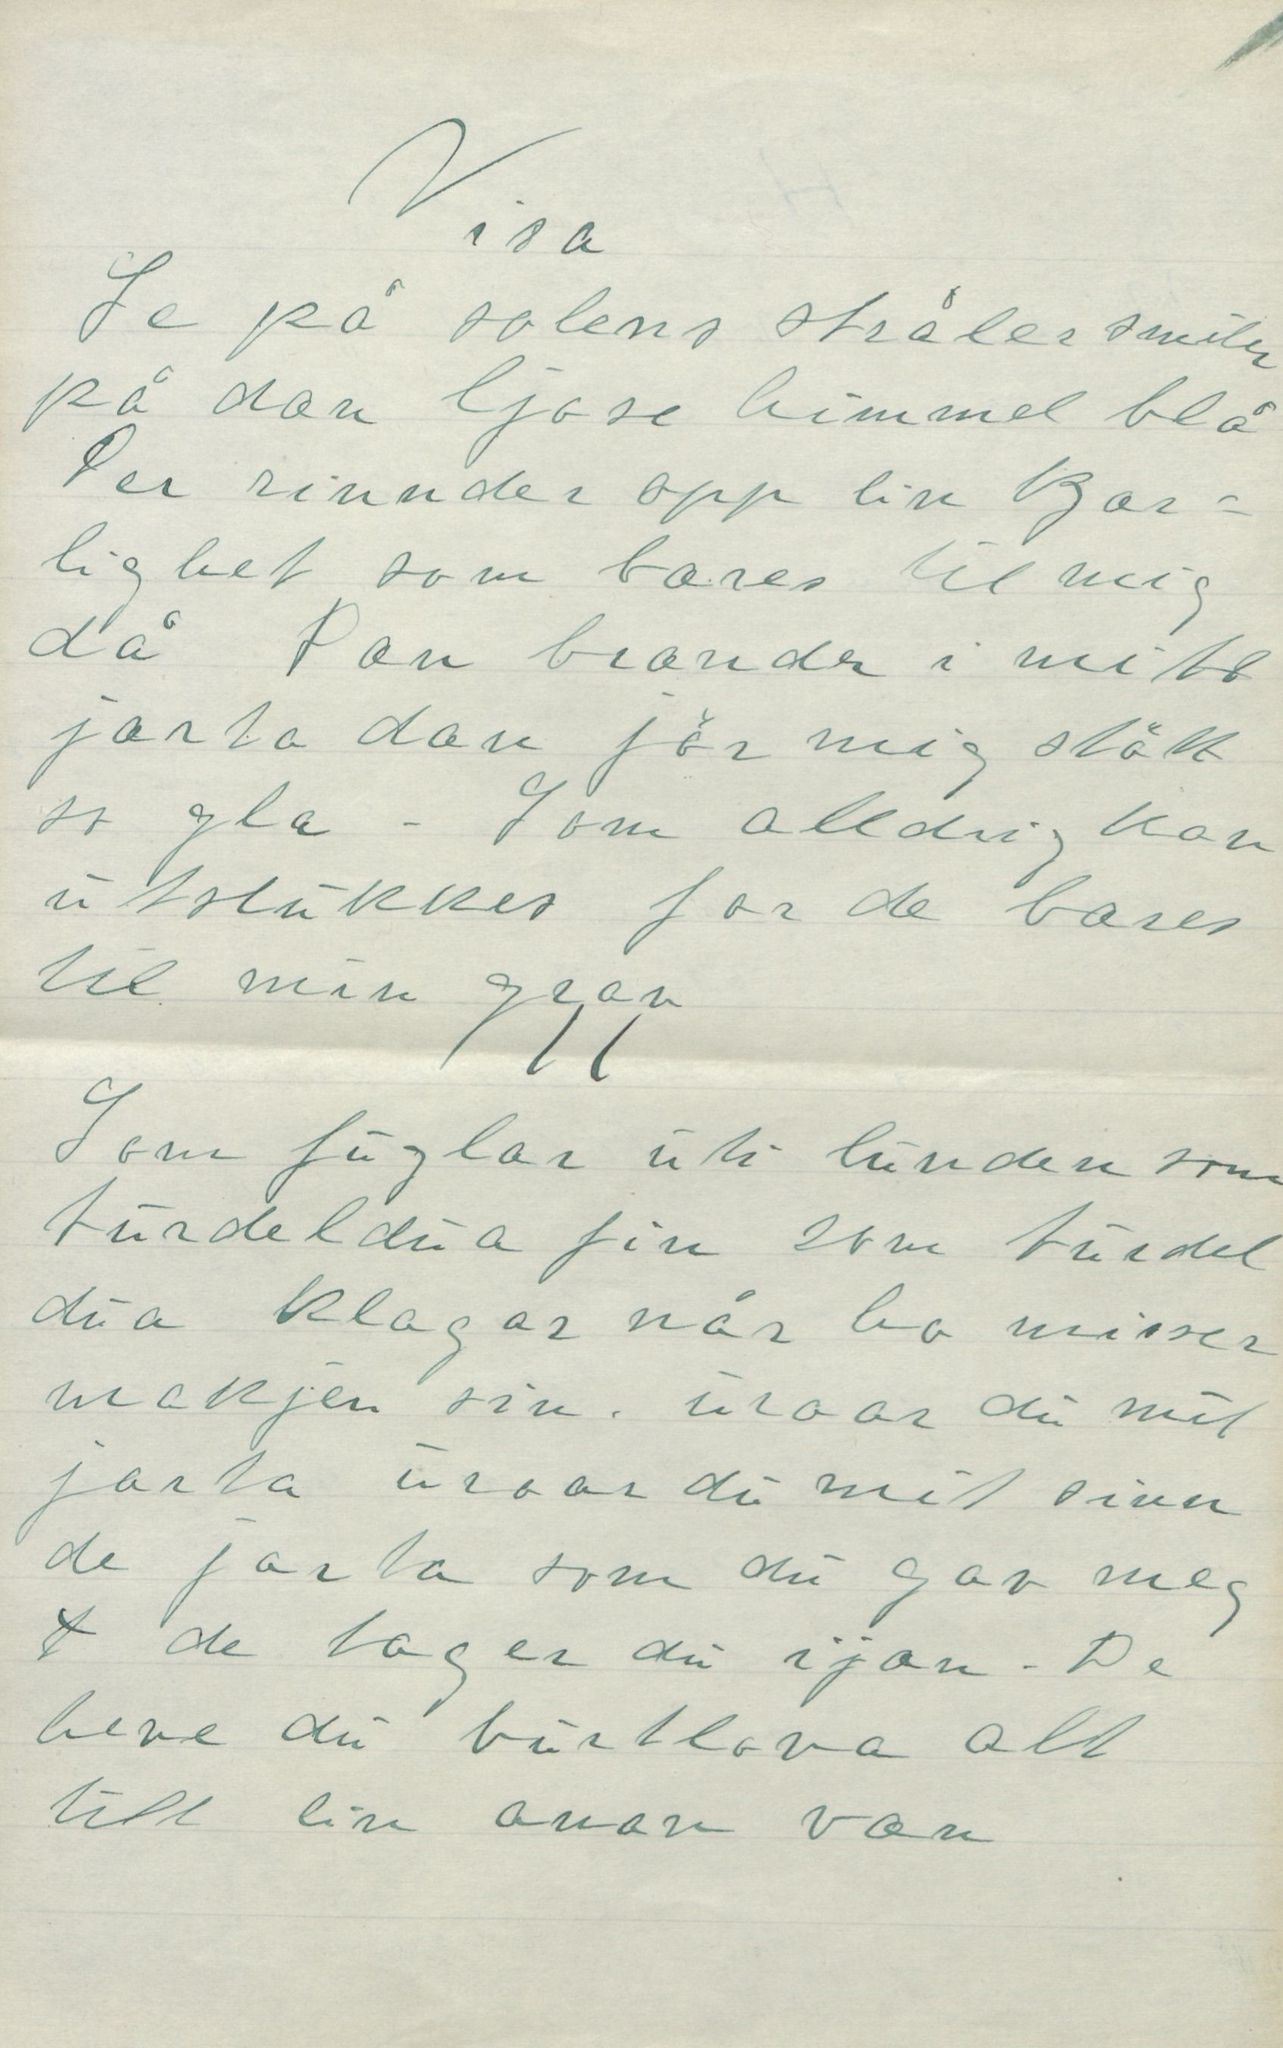 Visa
Se på solens stråler smiler
på dæn ljose himmel blå
Der rinnder opp ein Kjær-
lighet som bæres til mig
då Dæn brænder i mitt
jærta dæn jör mig stött
so gla - Som alldrig kan
utslukkes for de bæres
til min grav
11
Som fuglar uti lunden som
turdeldua fin som turdel
dua klagar når ho misser
makjen sin. uroar du mit
jærta uroar du mit sinn
de jærta som du gav meg
+ de tager du ijæn - De
heve du burtlova alt
till ein anan væn